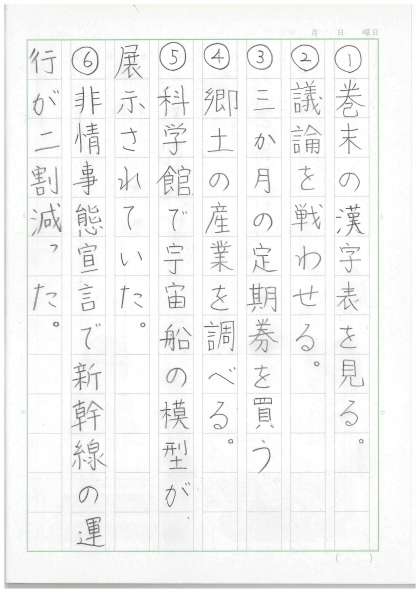 月　日　曜日
①巻末の漢字表を見る。
②議論を戦わせる。
③三か月の定期券を買う
④郷土の産業を調べる。
⑤科学館で宇宙船の模型が
展示されていた。
⑥非情事態宣言で新幹線の運
行が二割減った。
(　)